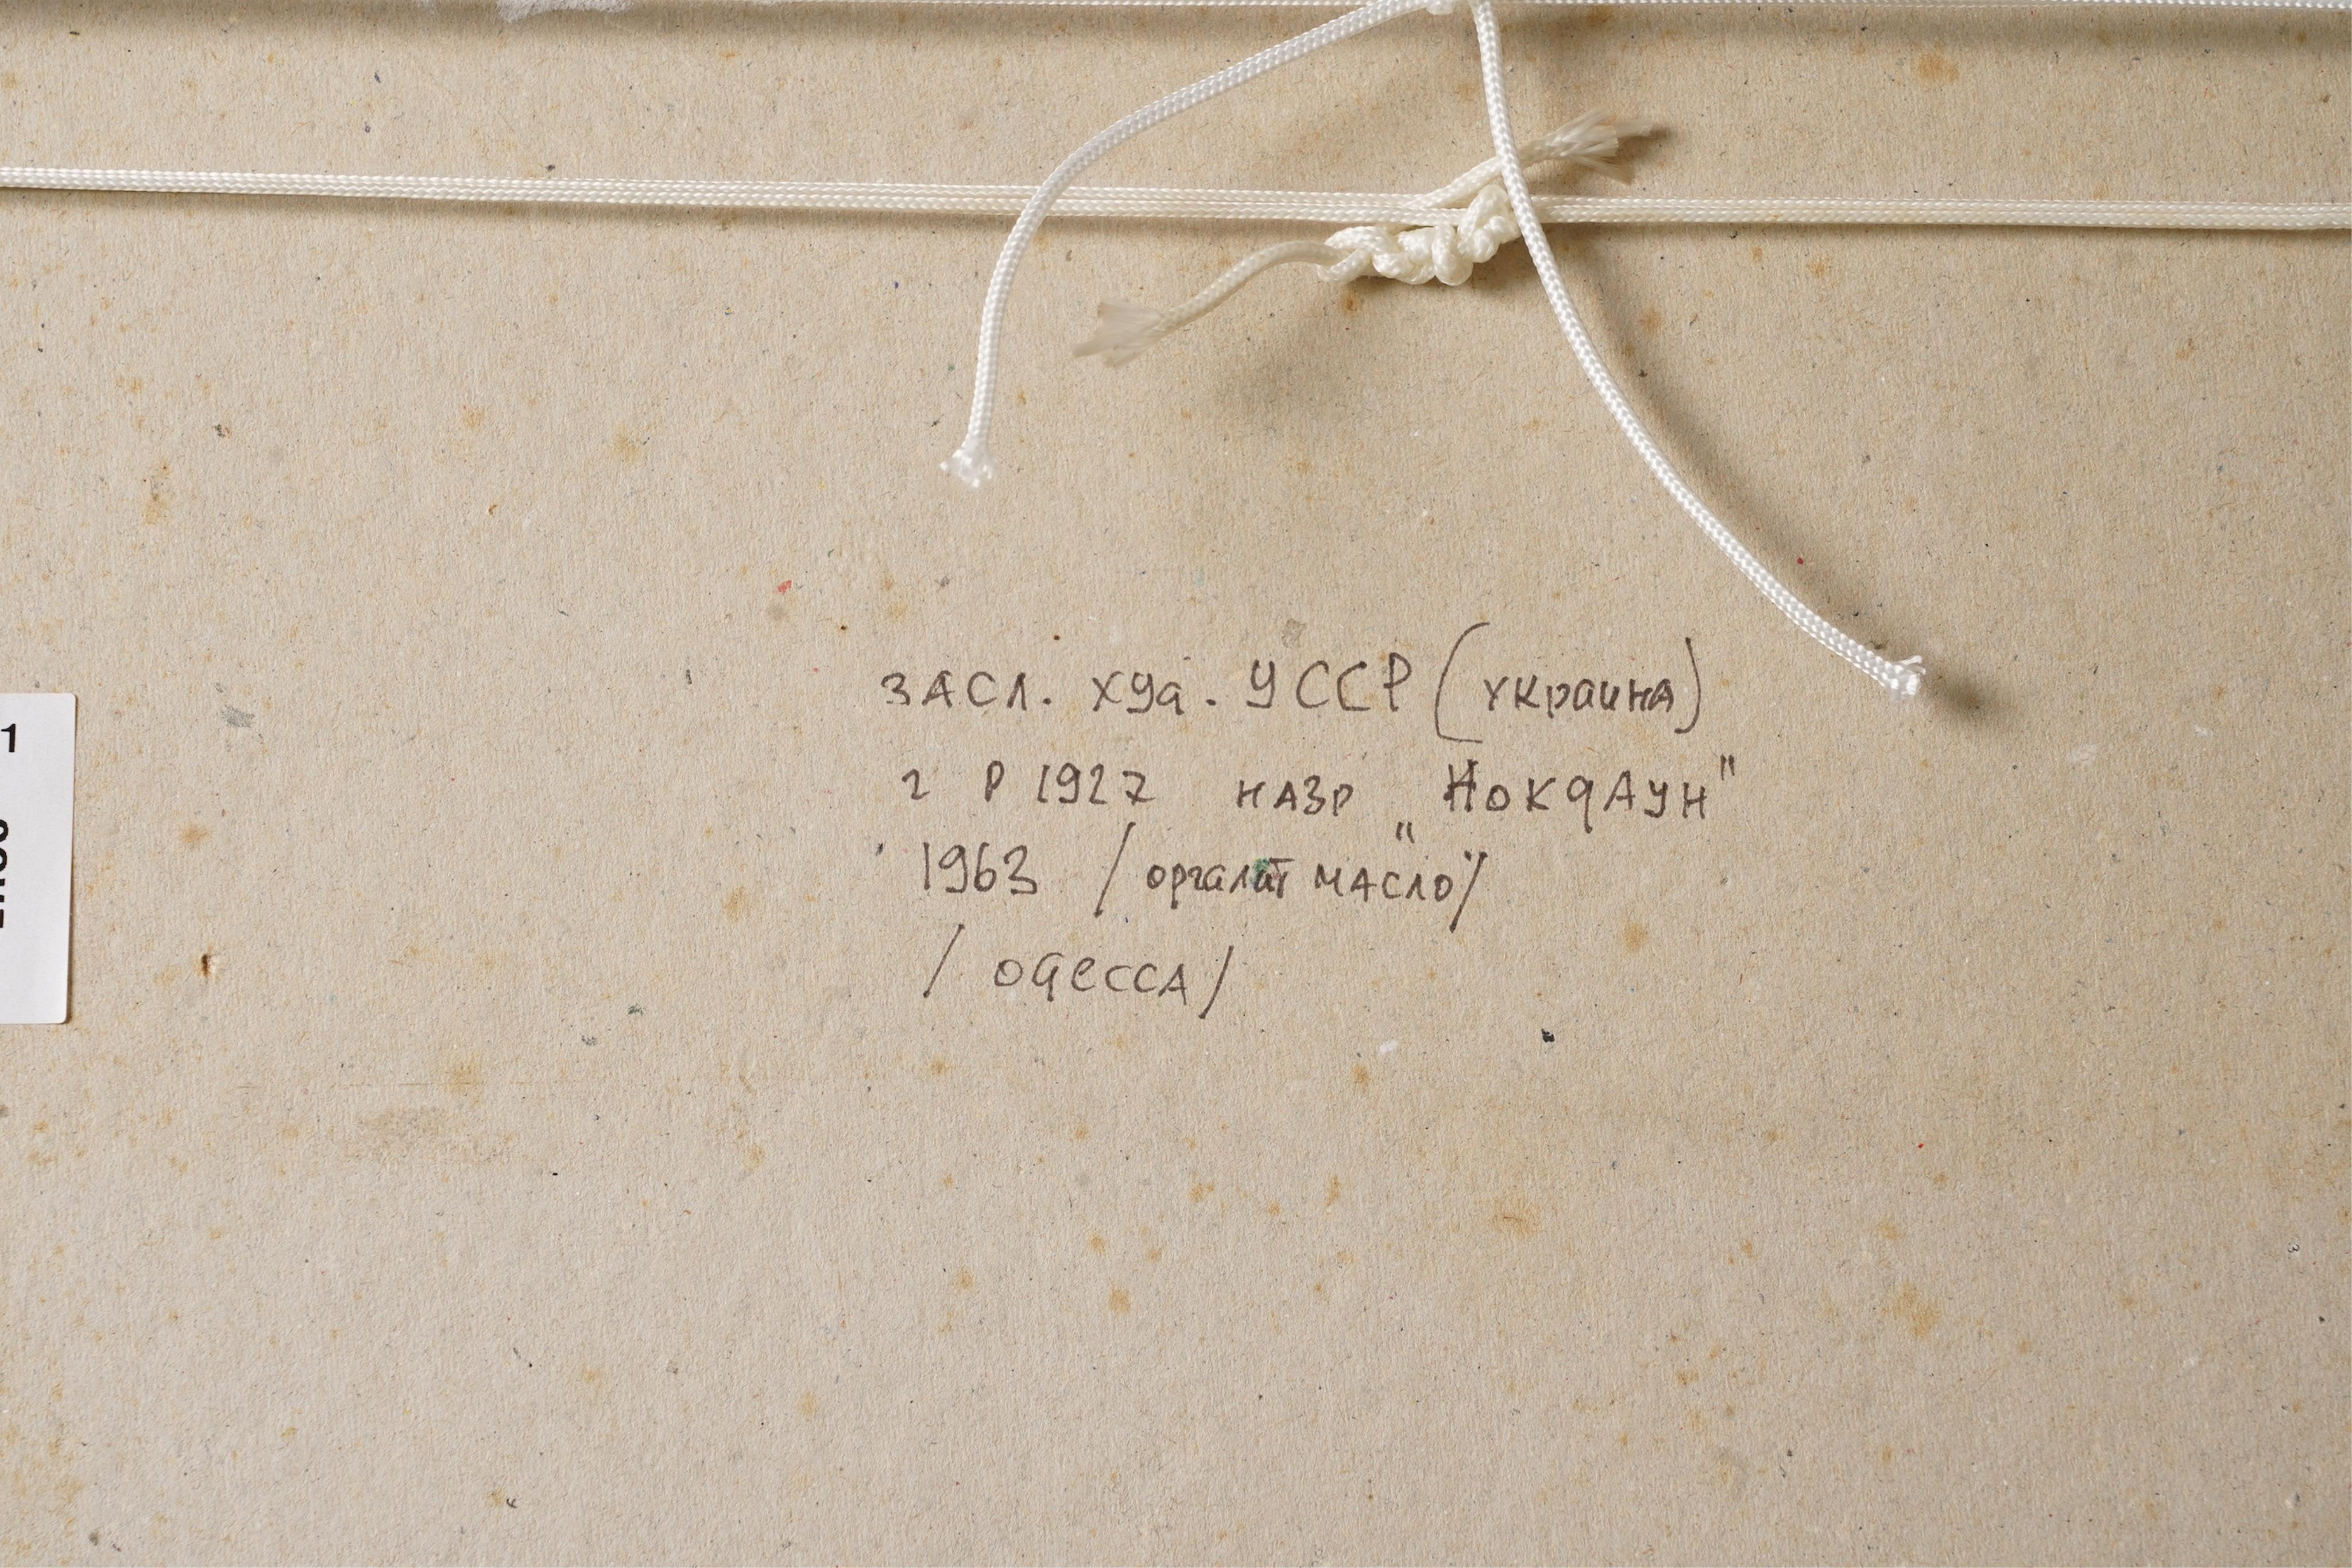 ЗАСЛ. ХУД. УССР (УКРАИНА)
г Р 1927 НАЗР „НОКДАУН"
1963 /ОРГАЛИТ МАСЛО/
/ОДЕССА/
1